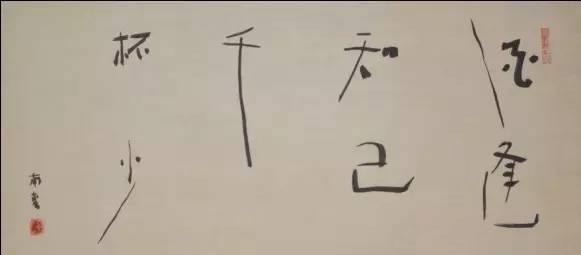 酒逢
知己
千
杯少
南